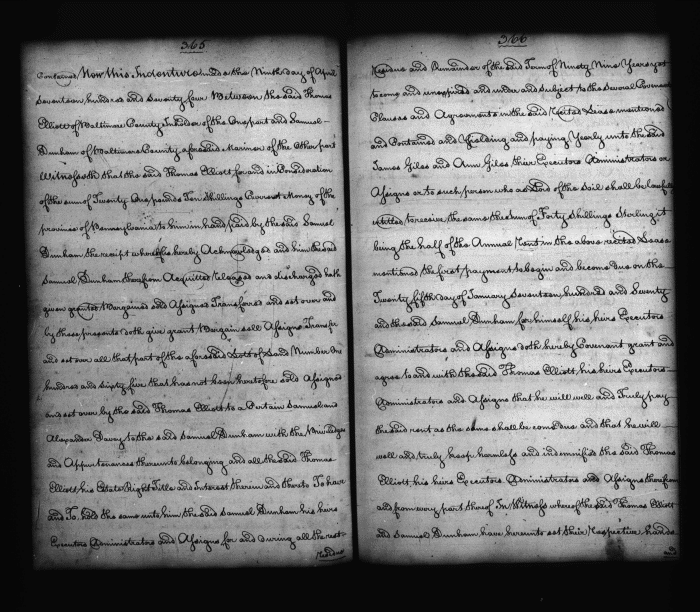 365
Contained Now this Indenture made the Ninth day of April
Seventeen hundred and Seventy four Between the said Thomas
Elliott of Baltimore County Inholder of the One part and Samuel
Dunham of Baltimore County aforesaid Mariner of the Other part
Witnesseth that the said Thomas Elliott for and in Consideration
of the sum of Twenty One pounds Ten Shillings Current Money of the
province of Pennsylvania to him in hand paid by the said Samuel
Dunham the receipt whereof is hereby Acknowledged and him the said
Samuel Dunham therefrom Acquitted Released and discharged hath
given granted Bargained sold Assigned Transferred and set over and
by these presents doth give grant Bargain sell Assign Transfer
and set over all that part of the aforesaid Lott of Land Number One
hundred and Sixty five that has not been heretofore sold Assigned
and set over by the said Thomas Elliott to a Certain Samuel and
Alexander Davey to the said Samuel Dunham with the Privileges
and Appurtenances thereunto belonging and all the said Thomas
Elliott his Estate Right Title and Interest therein and thereto To have
and To hold the same unto him the said Samuel Dunham his heirs
Executors Administrators and Assigns for and During all the rest
Residue
366
Residue and Remainder of the said Term of Ninety Nine Years yet
to come and unexpired and under and Subject to the Several Covenants
Clauses and Agreements in the said Recited Lease mentioned
and Contained and Yielding and paying Yearly unto the said
James Giles and Ann Giles their Executors Administrators or
Assigns or to such person who as Lord of the Soil shall be lawfully
entitled to receive the same the Sum of Forty Shillings Sterling it
being the half of the Annual Rent in the above recited Lease
mentioned the first payment to begin and become Due on the
Twenty fifth day of January Seventeen hundred and Seventy
and the said Samuel Dunham for himself his heirs Executors
Administrators and Assigns doth hereby Covenant grant and
agree to and with the said Thomas Elliott his heirs Executors
Administrators and Assigns that he will well and Truly pay
the said rent as the same shall become Due and that he will
well and truly keep harmless and indemnified the said Thomas
Elliott his heirs Executors Administrators and Assigns therefrom
and from every part thereof In Witness whereof the said Thomas Elliott
and Samuel Dunham have hereunto set their Respective hands
and